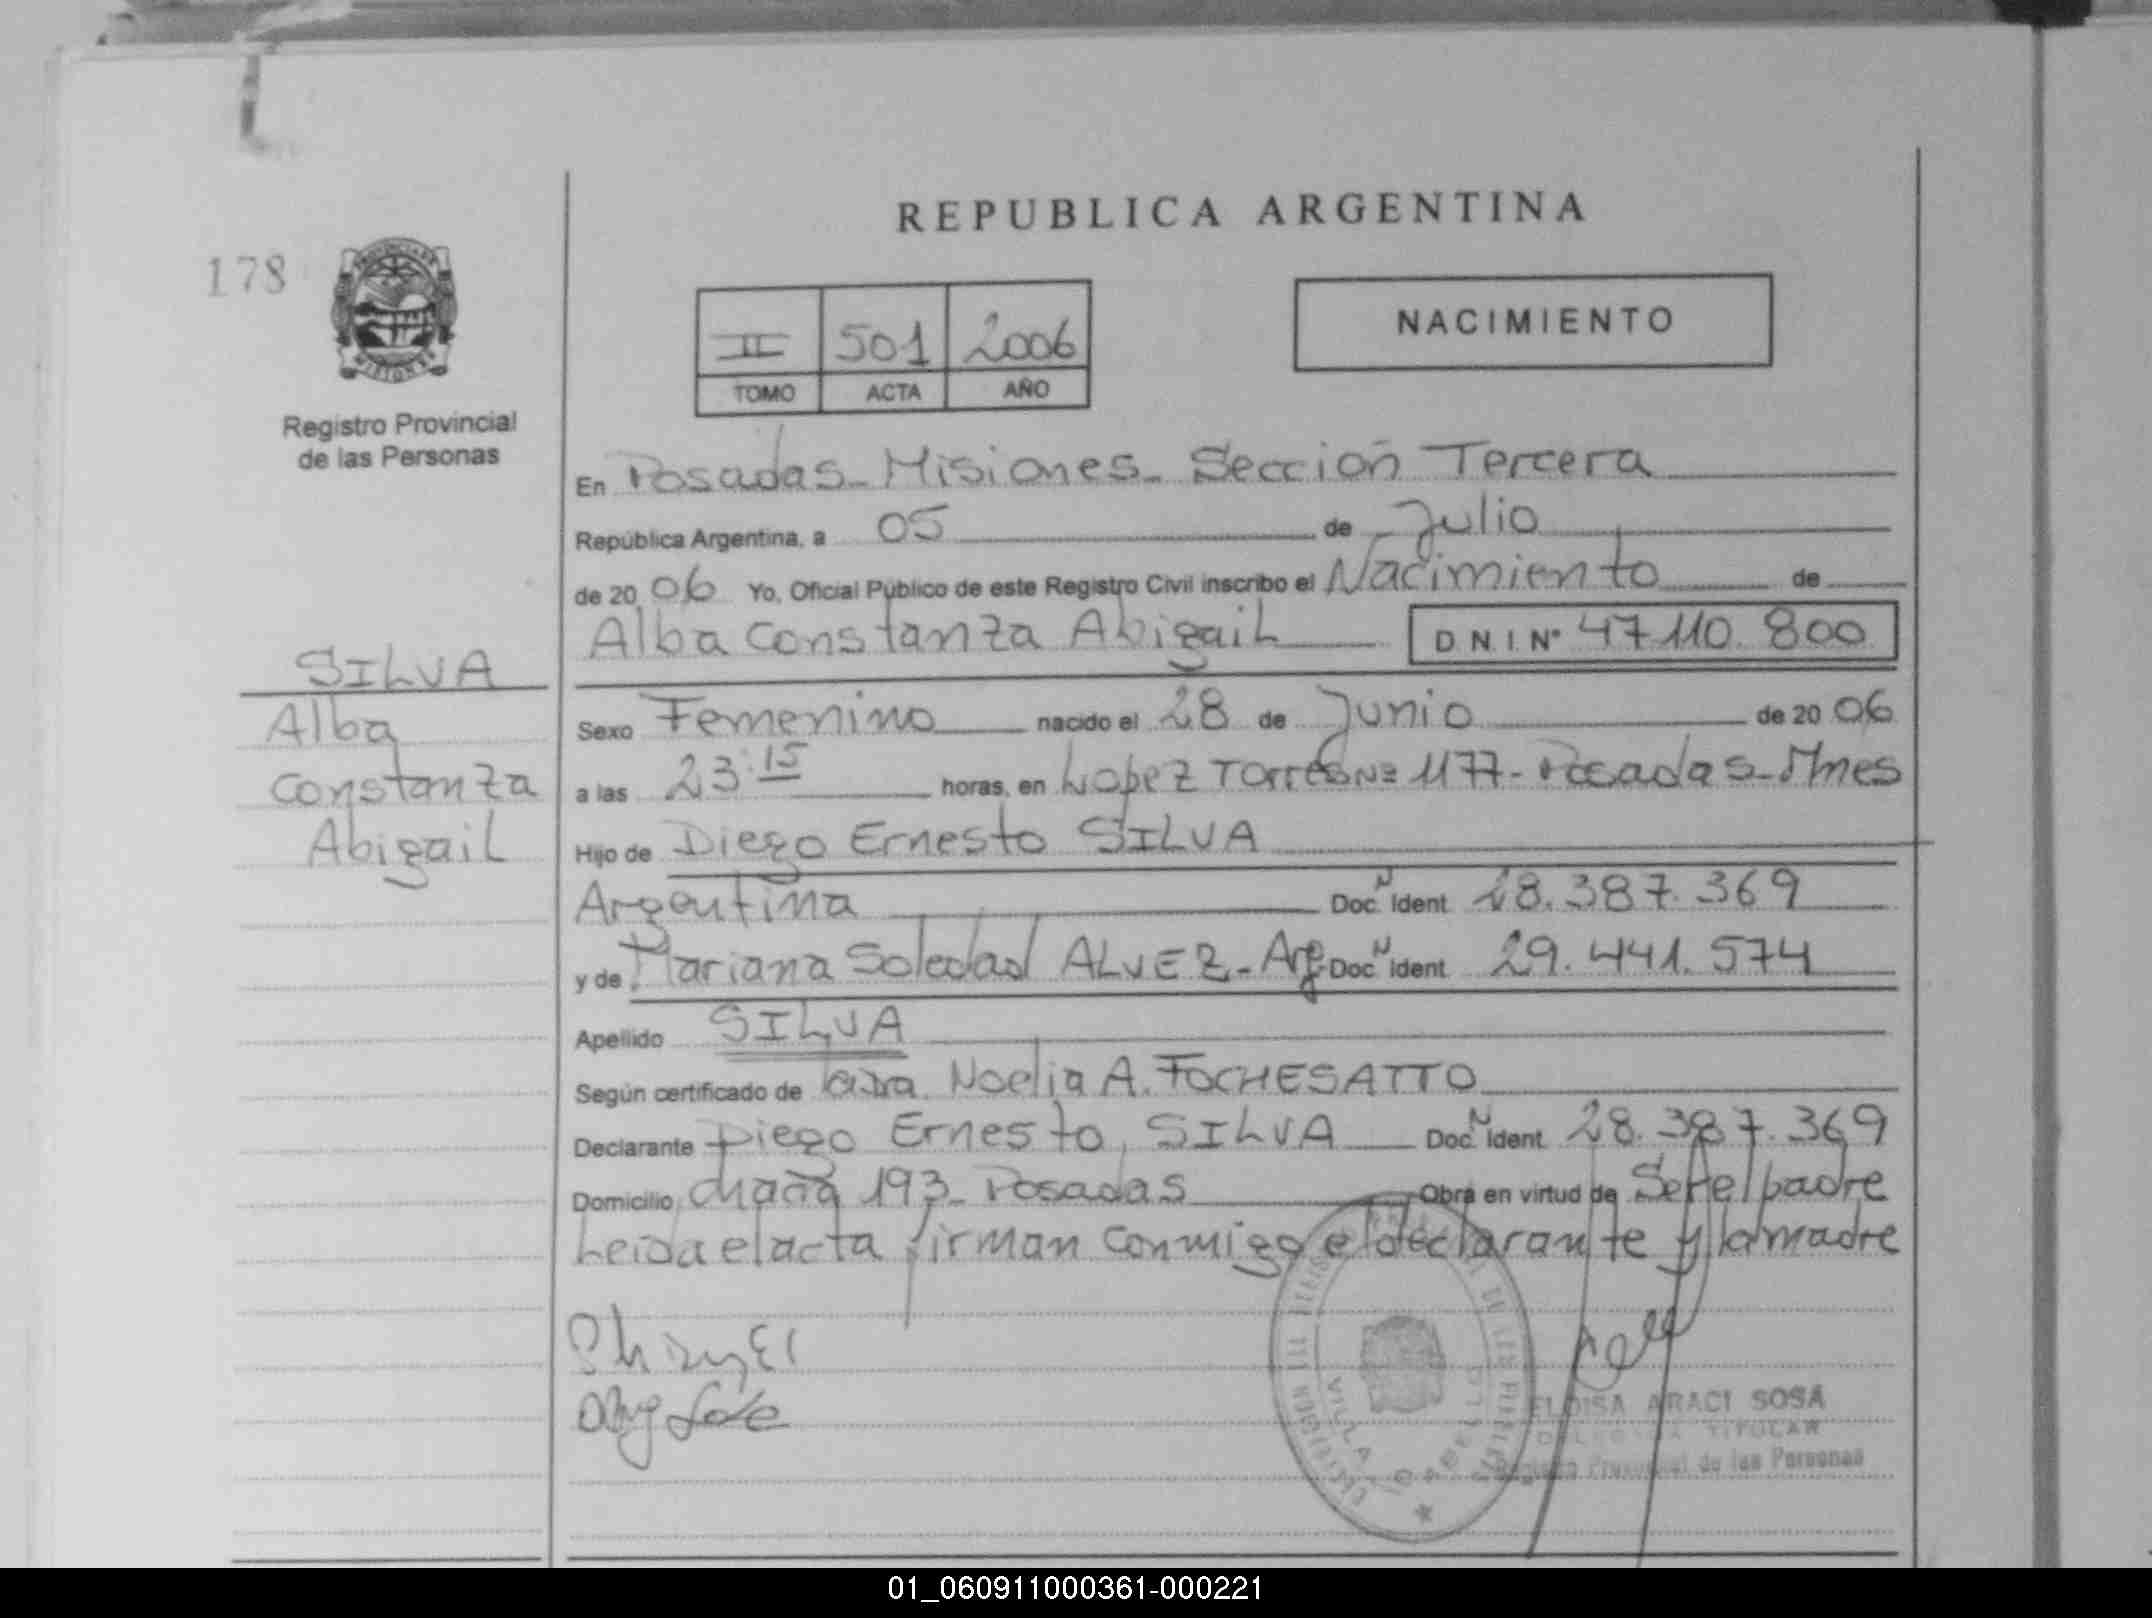 REPUBLICA ARGENTINA
178
PROVINCIA DE
MISIONES
Registro Provincial
de las Personas
II 501 2006
TOMO ACTA AÑO
NACIMIENTO
En Posadas - Misiones - Sección Tercera
República Argentina, a 05 de Julio
de 20 06 Yo, Oficial Público de este Registro Civil inscribo el Nacimiento de
Alba Constanza Abigail D.N.I. Nº 47.110.800
SILVA
Alba
Constanza
Abigail
Sexo Femenino nacido el 28 de Junio de 20 06
a las 23:15 horas, en Lopez Torres Nº 1177 - Posadas - Mnes
Hijo de Diego Ernesto SILVA
Argentina Doc. N Ident 28.387.369
y de Mariana Soledad ALVEZ - Arg. Doc. N Ident 29.441.574
Apellido SILVA
Según certificado de la Dra. Noelia A. FOCHESATTO
Declarante Diego Ernesto SILVA Doc. N Ident 28.387.369
Domicilio 193 - Posadas Obra en virtud de Ser el padre
Leida el acta firman conmigo el declarante y la madre
VILLA CABELLO
ELOISA ARACI SOSA
DELEGADA TITULAR
Registro Provincial de las Personas
01_060911000361-000221